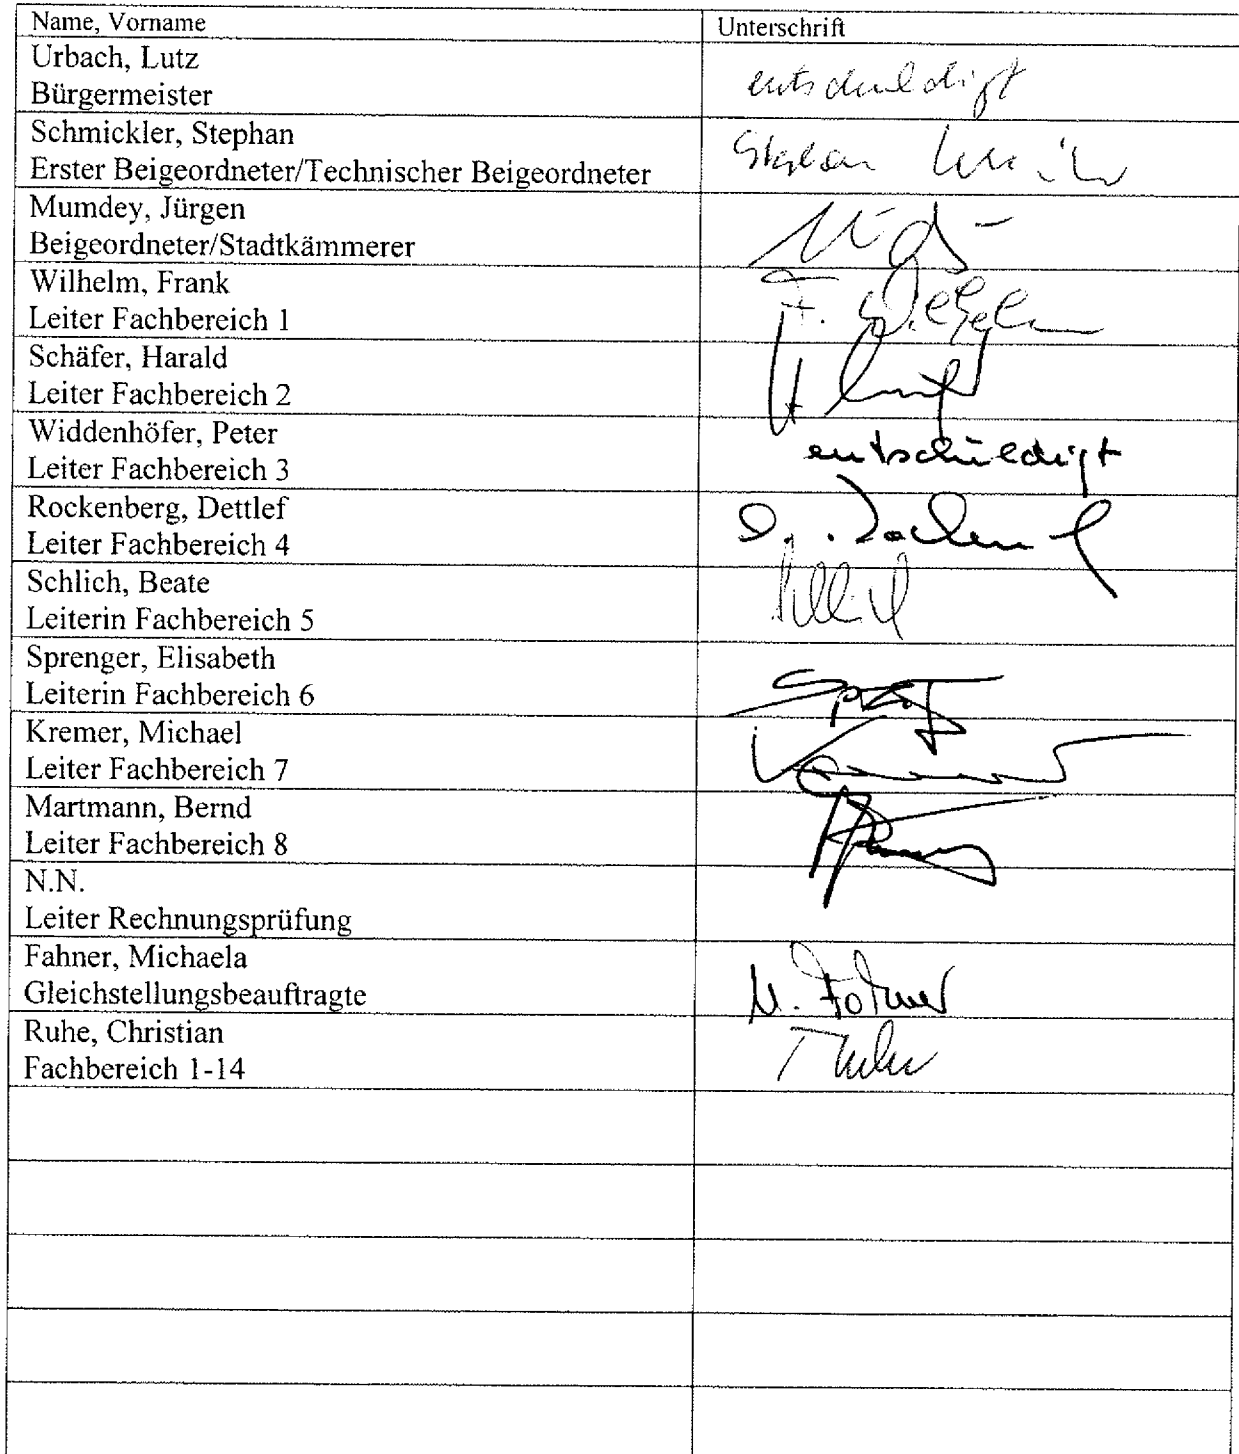 Name, Vorname
Unterschrift
Urbach, Lutz
Bürgermeister
entschuldigt
Schmickler, Stephan
Erster Beigeordneter/Technischer Beigeordneter
Stephan
Mumdey, Jürgen
Beigeordneter/Stadtkämmerer
Wilhelm, Frank
Leiter Fachbereich 1
F. Wilhelm
Schäfer, Harald
Leiter Fachbereich 2
Widdenhöfer, Peter
Leiter Fachbereich 3
entschuldigt
Rockenberg, Dettlef
Leiter Fachbereich 4
Schlich, Beate
Leiterin Fachbereich 5
Sprenger, Elisabeth
Leiterin Fachbereich 6
Kremer, Michael
Leiter Fachbereich 7
Martmann, Bernd
Leiter Fachbereich 8
N.N.
Leiter Rechnungsprüfung
Fahner, Michaela
Gleichstellungsbeauftragte
M. Fahner
Ruhe, Christian
Fachbereich 1-14